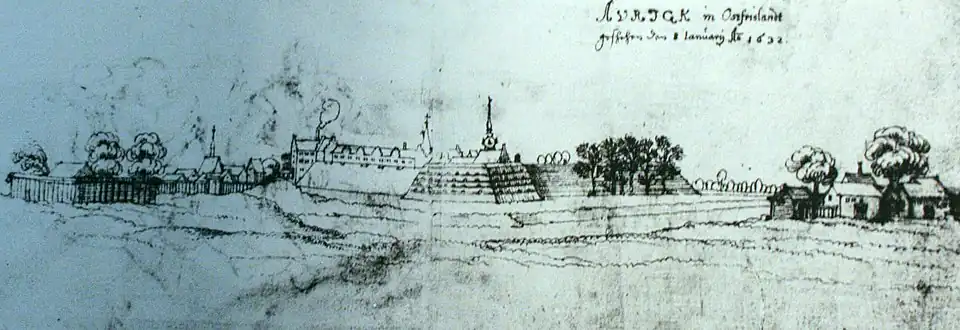 AVRIGK in Ostfrislandt
geschehen den 8 Ianuarij Aō 1632.